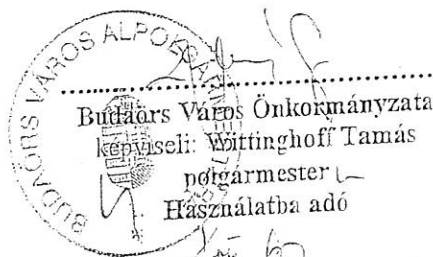 BUDAÖRS VÁROS ALPOLGÁRMESTERE
Budaörs Város Önkormányzata
képviseli: Wittinghoff Tamás
polgármester
Használatba adó